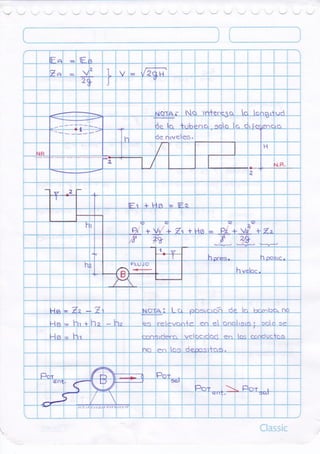 EA = EB
ZA = V²/2g } V = √2gH
NOTA: No interesa la longitud
de la tubería, solo la diferencia
de niveles.
1
h
H
NR
NR
2
2
2
E1 + HB = E2
h1
P1/γ + V1²/2g + Z1 + HB = P2/γ + V2²/2g + Z2
h pres.
h posic.
h veloc.
1
h2
FLUJO
B
HB = Z2 - Z1
HB = h1 + h2 - h2
HB = h1
NOTA: La posición de la bomba no
es relevante en el analisis; solo se
considera velocidad en los conductos
no en los depositos.
POT ent.
B
POT sal
POT ent. > POT sal
Classic